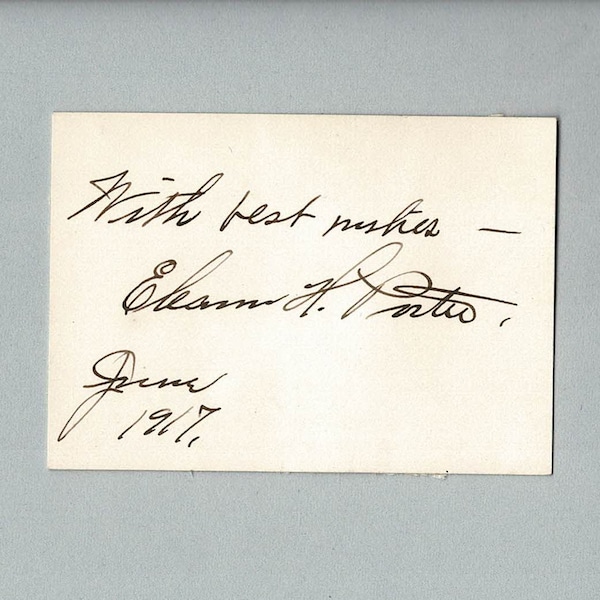 With best wishes —
Eleanor H. Porter.
June
1917.